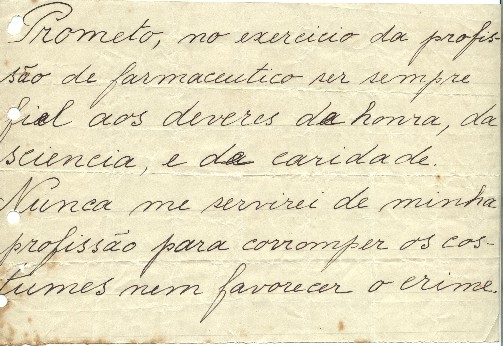 Prometo, no exercicio da profis-
são de farmaceutico ser sempre
fiel aos deveres da honra, da
sciencia, e da caridade.
Nunca me servirei de minha
profissão para corromper os cos-
tumes nem favorecer o crime.